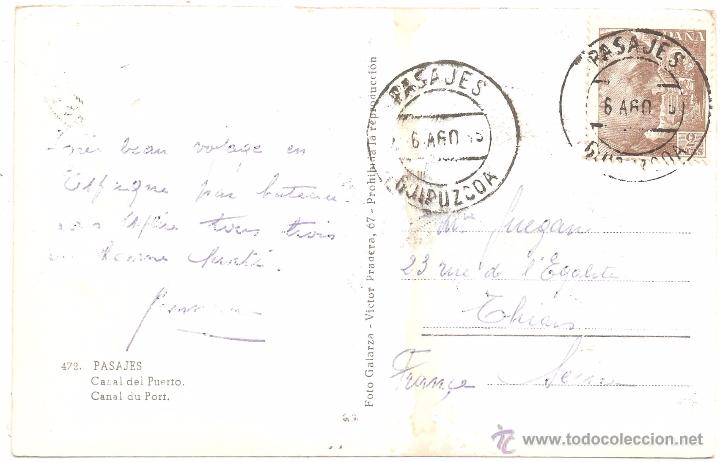 Très beau voyage en
Espagne par bateau
tous trois
en bonne santé.
472. PASAJES
Canal del Puerto.
Canal du Port.
Foto Galarza - Victor Pradera, 67 - Prohibida la reproducción
PASAJES
6 AGO
GUIPUZCOA
ESPAÑA
PASAJES
6 AGO
GUIPUZCOA
23 rue de l'Egalité
Thiais
France Seine
© www.todocoleccion.net